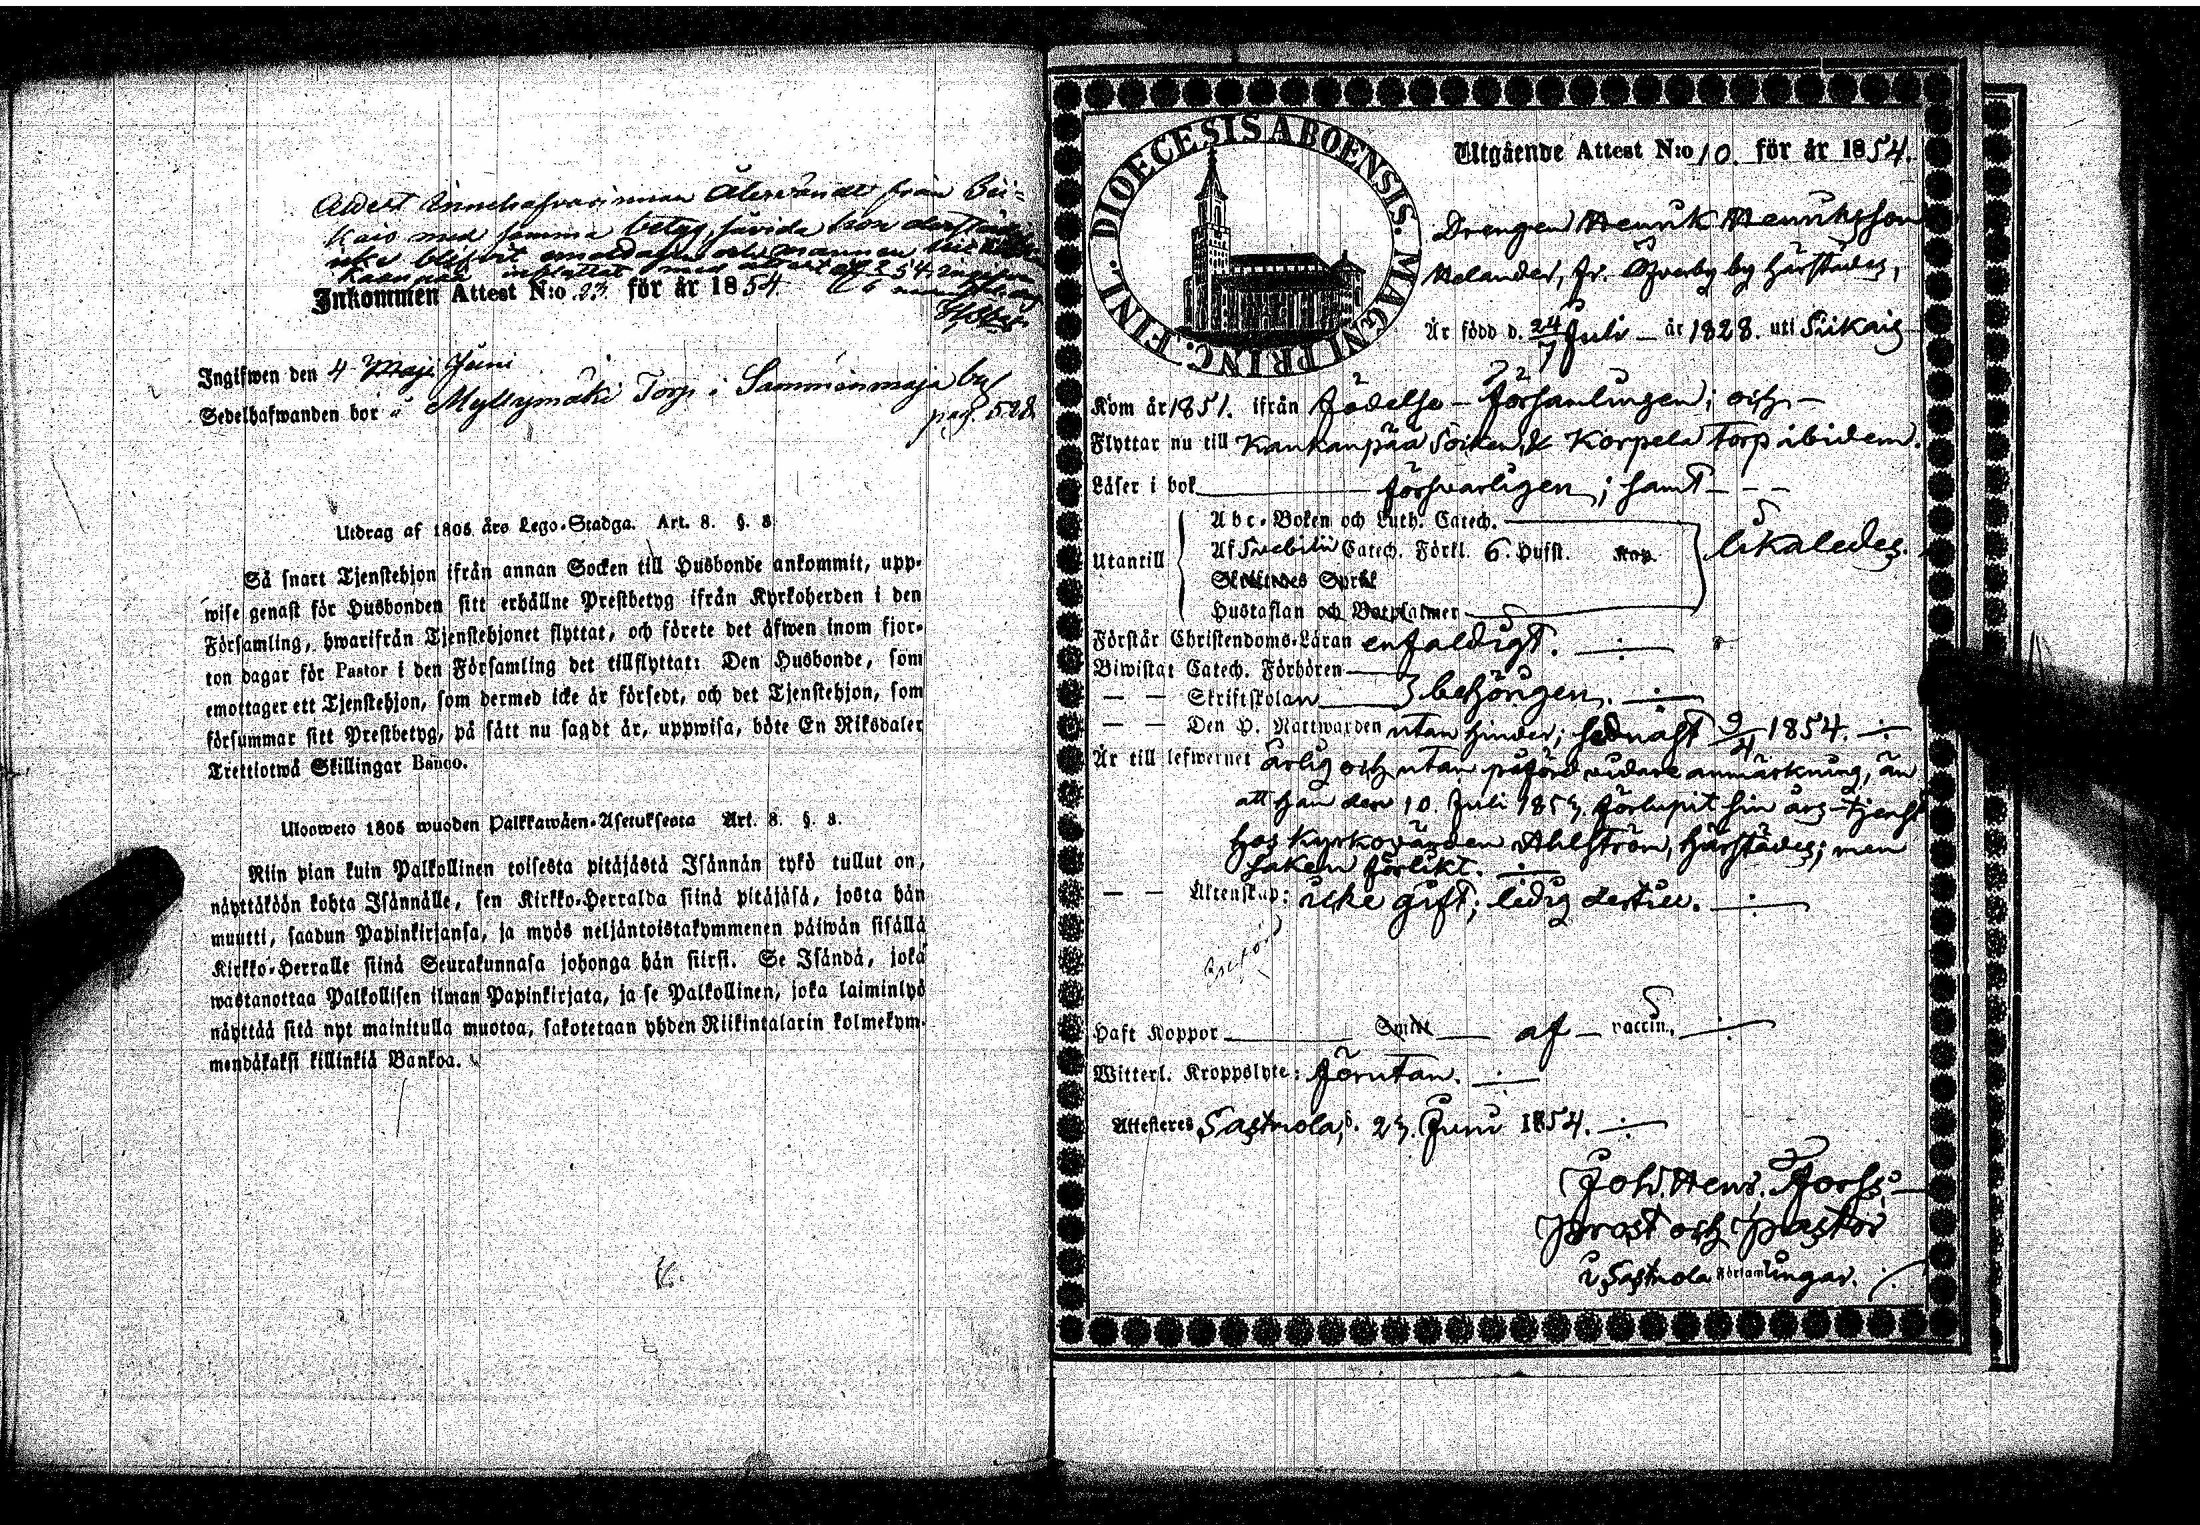 innehafvarinnan återvändt från Sii-
kais med samma betyg, såvida hon derstädes
icke blifvit emottagen och mannen
inflyttat med attest
Inkommen Attest N:o 23. för år 1854
Ingifwen den 4 Maji Juni
Sedelhafwanden bor å Myllymäki Torp i Sammimaja by
pag. 528.
Utdrag af 1805 års Lego-Stadga. Art. 8. §. 8
Så snart Tjenstehjon ifrån annan Socken till Husbonde ankommit, upp-
wise genast för Husbonden sitt erhållne Prestbetyg ifrån Kyrkoherden i den
Församling, hwarifrån Tjenstehjonet flyttat, och förete det äfwen inom fjor-
ton dagar för Pastor i den Församling det tillflyttat: Den Husbonde, som
emottager ett Tjenstehjon, som dermed icke är försedt, och det Tjenstehjon, som
försummar sitt Prestbetyg, på sätt nu sagdt är, uppwisa, böte En Riksdaler
Trettiotwå Skillingar Banco.
Ulosweto 1805 wuoden Palkkawäen-Asetuksesta Art. 8. §. 8.
Niin pian kuin Palkollinen toisesta pitäjästä Isännän tykö tullut on,
näyttäköön kohta Isännälle, sen Kirkko-Herralda siinä pitäjäsä, josta hän
muutti, saadun Papinkirjansa, ja myös neljäntoistakymmenen päiwän sisällä
Kirkko-Herralle siinä Seurakunnasa johonga hän siirsi. Se Isändä, joka
wastanottaa Palkollisen ilman Papinkirjata, ja se Palkollinen, joka laiminlyö
näyttää sitä nyt mainitulla muotoa, sakotetaan yhden Riikintalarin kolmekym-
mendäkaksi killinkiä Bankoa.
DIOECESIS ABOENSIS. MAGNI PRINC. FINL.
Utgående Attest N:o 10. för år 1854.
Drengen Henrik Henriksson
Melander, fr. Öfverby by härstädes,
Är född d. 24/7 Juli – år 1828. uti Siikais
Kom år 1851. ifrån födelse-församlingen; och –
Flyttar nu till Kankanpää Socken, & Korpela Torp ibidem.
Läser i bok försvarligen; samt – – –
Abc-Boken och Luth. Catech.
Utantill Af Svebilii Catech. Förkl. 6. Hufst. Kap. likaledes.
Skillnades Språk
Hustaflan och Botpsalmer
Förstår Christendoms-Läran enfaldigt.
Biwistat Catech. Förhören
— — Skriftskolan behörigen.
— — Den H. Nattwarden utan hinder; sednast 9/4 1854.
Är till lefwernet ärlig och utan påförd vidare anmärkning, än
att han den 10 Juli 1853. förlupit sin års-tjenst
hos Kyrkovärden Ahlström, härstädes; men
saken förlikt.
— — Äktenskap: icke gift; ledig dertill.
Haft Koppor af – vaccin.,
Witterl. Kroppslyte: förutan.
Attesteres Sastmola, d. 23. Juni 1854.
Joh. Henr. Forss
Prost och Pastor
i Sastmola Församlingar.